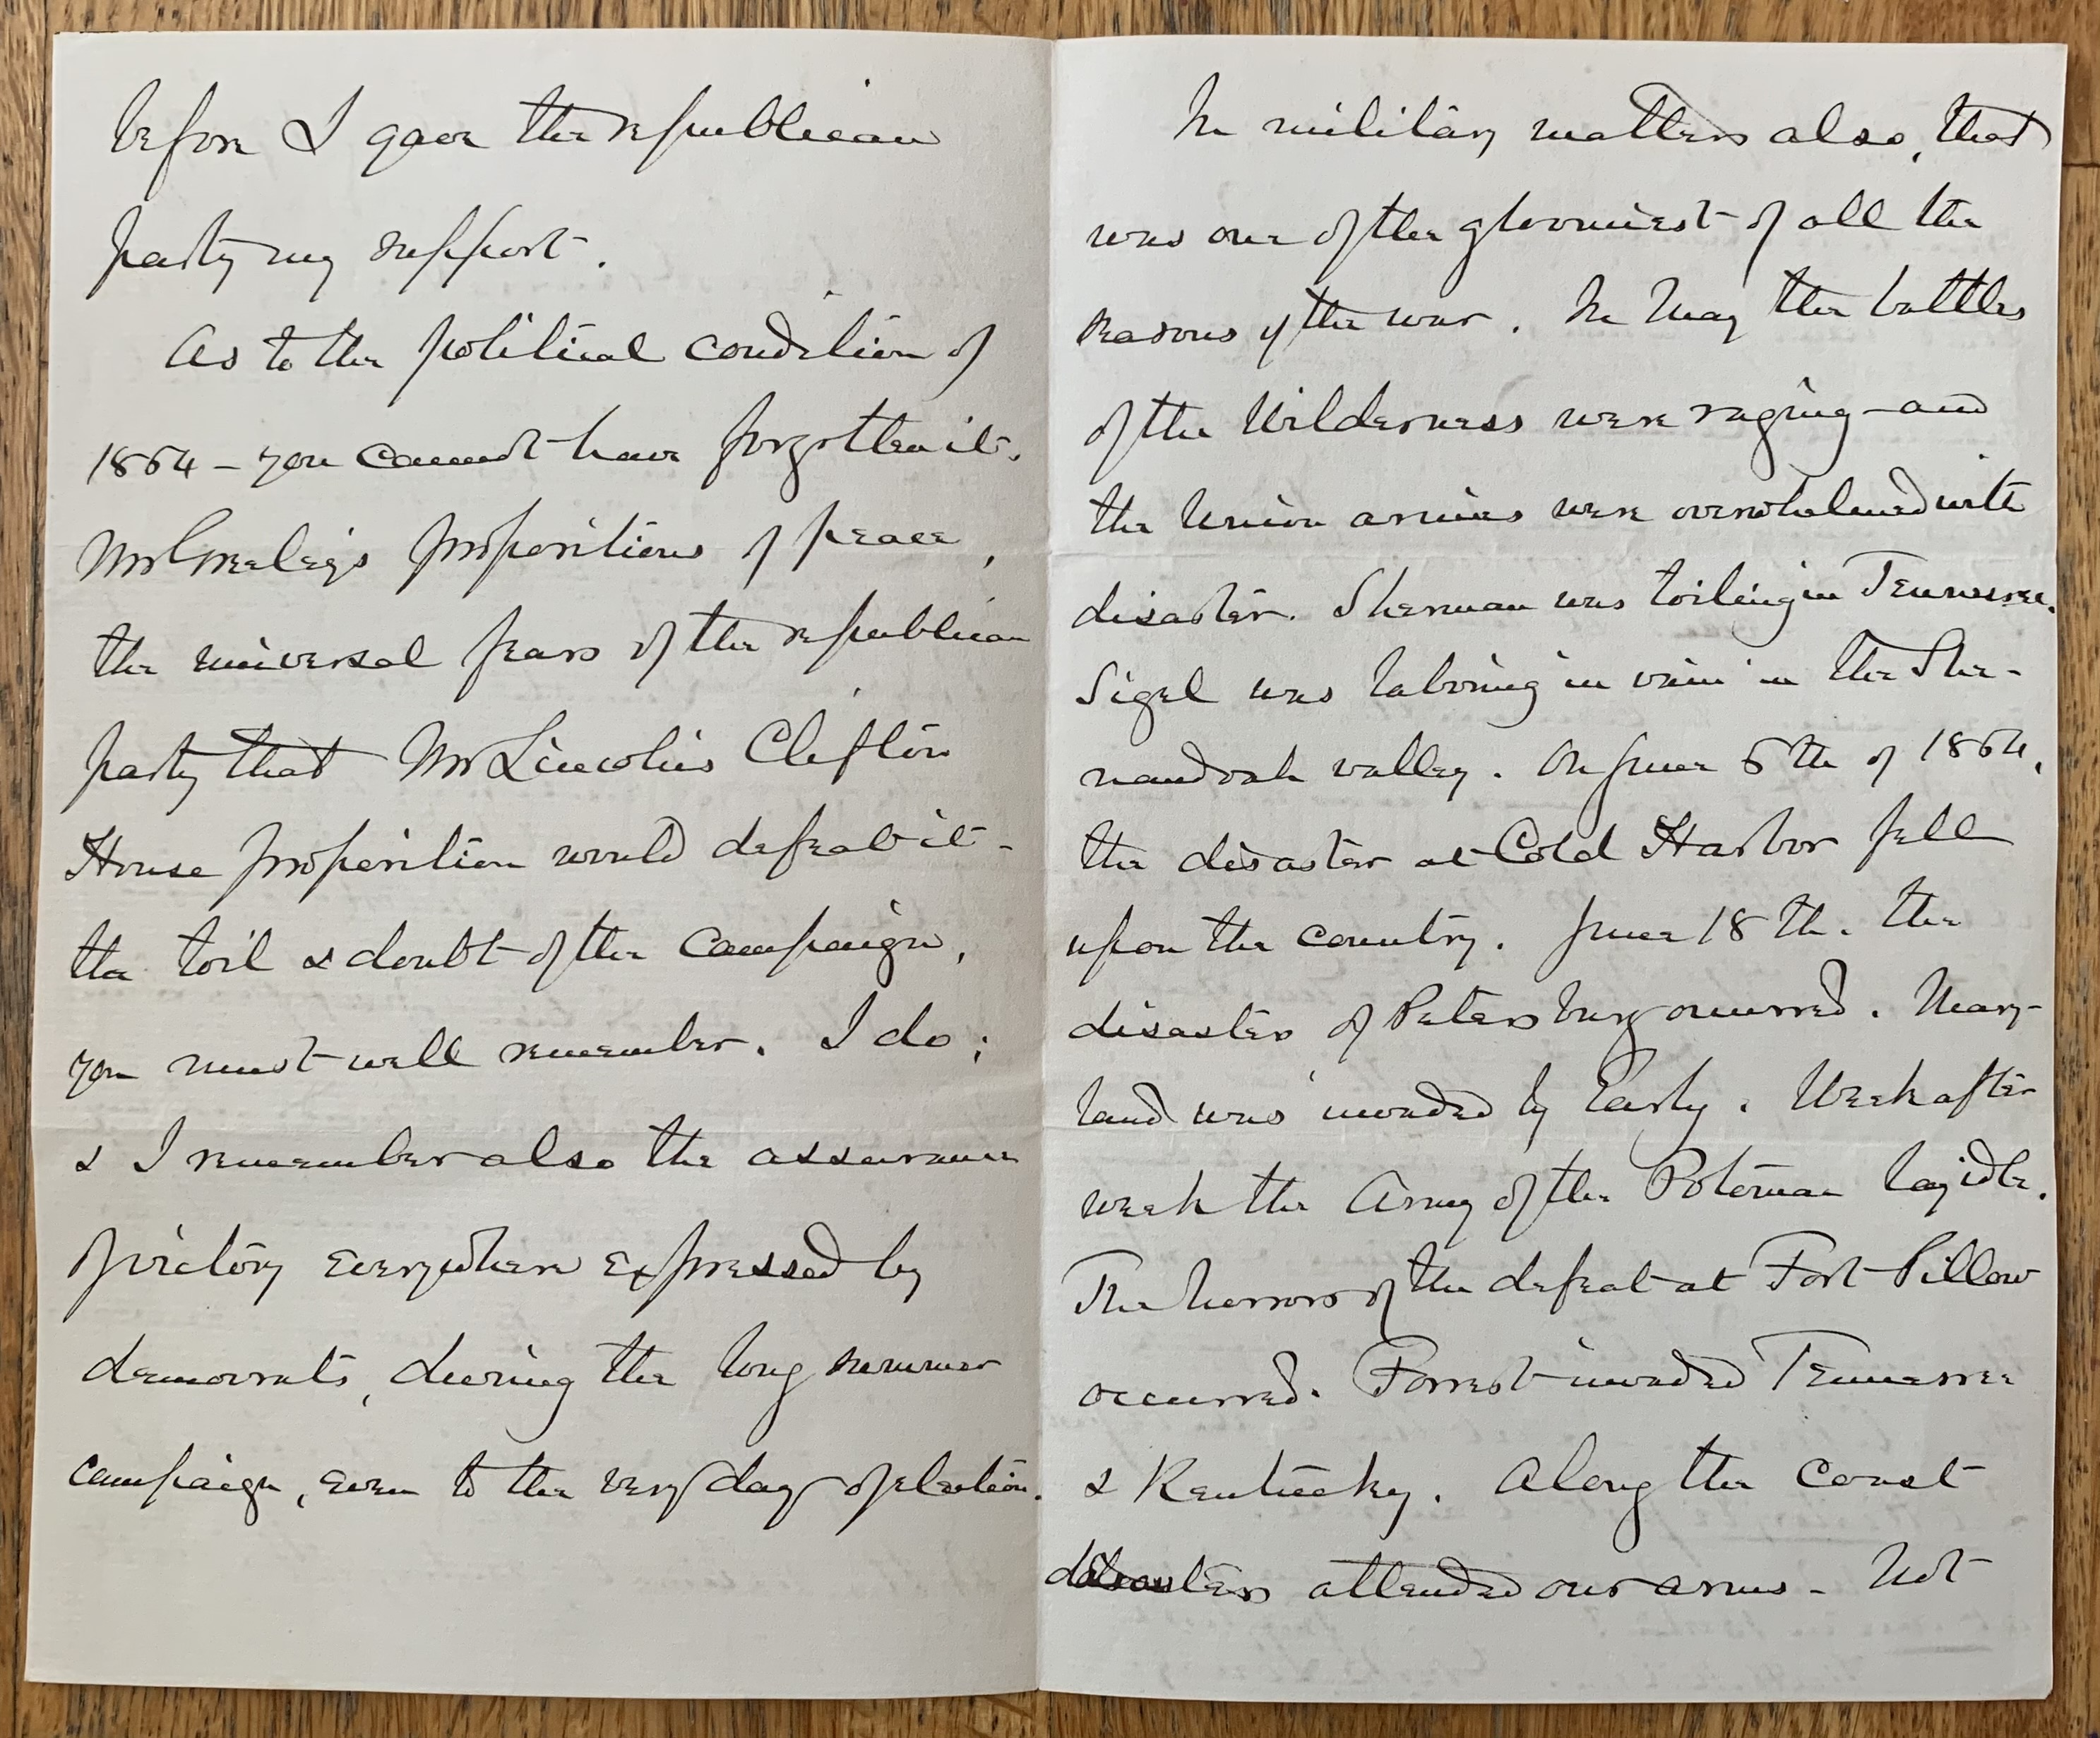 before I gave the republican
party my support.
As to the political condition of
1864 – you cannot have forgotten it.
Mr Greeley's propositions of peace,
the universal fears of the republican
party that Mr Lincoln's Clifton
House proposition would defeat it –
the toil & doubt of the campaign,
you must well remember. I do;
& I remember also the assurance
of victory everywhere expressed by
democrats, during the long summer
campaign, even to the very day of election.
In military matters also, that
was one of the gloomiest of all the
seasons of the war. In May the battles
of the Wilderness were raging – and
the Union armies were overwhelmed with
disaster. Sherman was toiling in Tennessee.
Sigel was laboring in vain in the She-
nandoah valley. On June 6th of 1864,
the disaster at Cold Harbor fell
upon the country. June 18th. the
disaster of Petersburg occurred. Mary-
land was invaded by Early. Week after
week the Army of the Potomac lay idle.
The horrors of the defeat at Fort Pillow
occurred. Forrest invaded Tennessee
& Kentucky. Along the coast
disasters attended our arms – Not